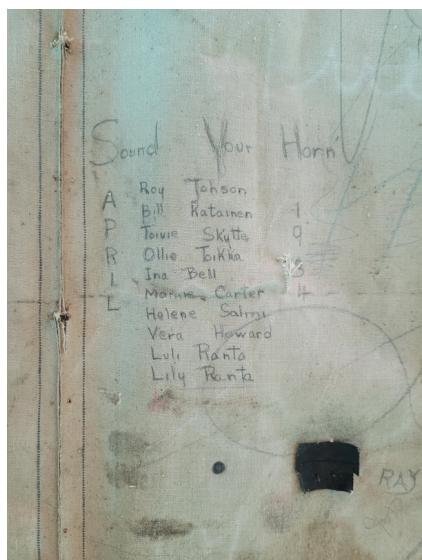 Sound Your Horn
APRIL
Roy Johson
Bill Katainen
Toivie Skytte
Ollie Toikka
Ina Bell
Carter
Helene Salmi
Vera Howard
Luli Ranta
Lily Ranta
1934
RAY